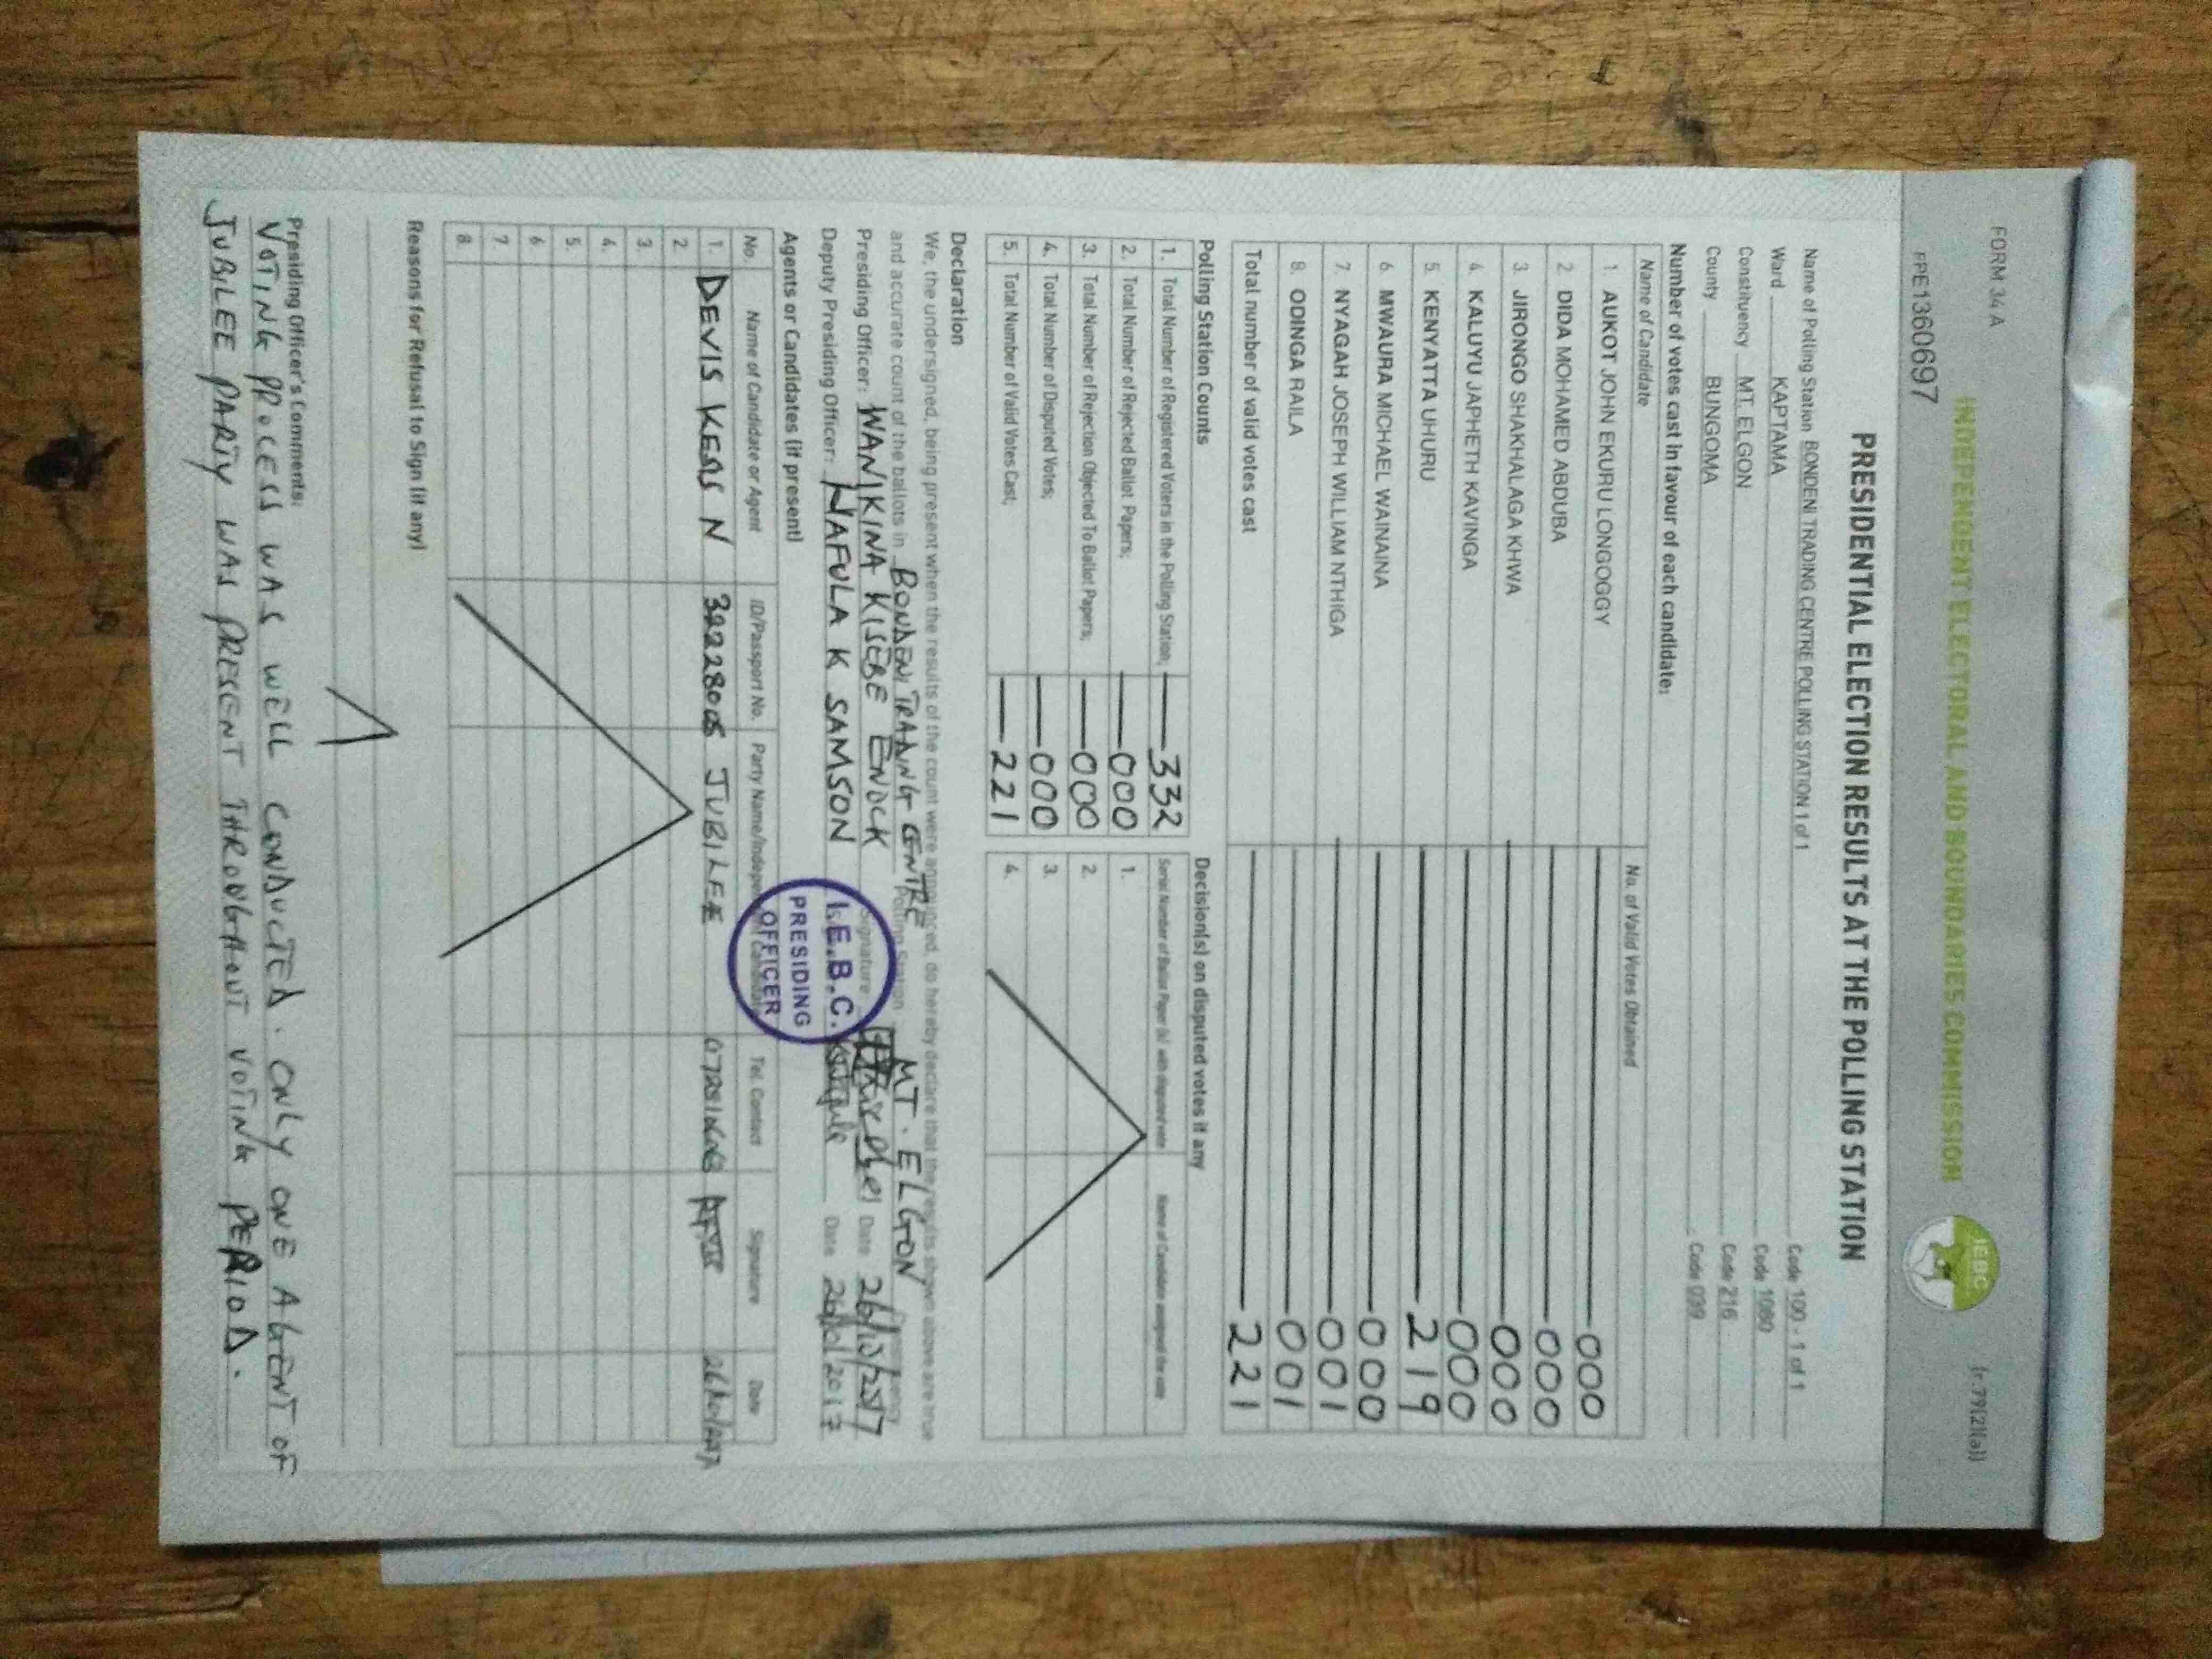 FORM 34 A
(r.79(2)(a))
PPE1360697
INDEPENDENT ELECTORAL AND BOUNDARIES COMMISSION
IEBC
PRESIDENTIAL ELECTION RESULTS AT THE POLLING STATION
Name of Polling Station BONDENI TRADING CENTRE POLLING STATION 1 of 1 Code 100 - 1 of 1
Ward KAPTAMA Code 1080
Constituency MT. ELGON Code 216
County BUNGOMA Code 039
Number of votes cast in favour of each candidate:
Name of Candidate No. of Valid Votes Obtained
1. AUKOT JOHN EKURU LONGOGGY 000
2. DIDA MOHAMED ABDUBA 000
3. JIRONGO SHAKHALAGA KHWA 000
4. KALUYU JAPHETH KAVINGA 000
5. KENYATTA UHURU 219
6. MWAURA MICHAEL WAINAINA 000
7. NYAGAH JOSEPH WILLIAM NTHIGA 001
8. ODINGA RAILA 001
Total number of valid votes cast 221
Polling Station Counts
1. Total Number of Registered Voters in the Polling Station; 332
2. Total Number of Rejected Ballot Papers; 000
3. Total Number of Rejection Objected To Ballot Papers; 000
4. Total Number of Disputed Votes; 000
5. Total Number of Valid Votes Cast; 221
Decision(s) on disputed votes if any
Serial Number of Ballot Paper (s) with disputed vote Name of Candidate assigned the vote
1.
2.
3.
4.
Declaration
We, the undersigned, being present when the results of the count were announced, do hereby declare that the results shown above are true
and accurate count of the ballots in BONDENI TRADING CENTRE Polling Station MT. ELGON Constituency
Presiding Officer: WANJKINA KISEBE ENOCK Signature Date 26/10/2017
Deputy Presiding Officer: NAFULA K SAMSON Date 26/10/2017
I.E.B.C.
PRESIDING
OFFICER
Agents or Candidates (if present)
No. Name of Candidate or Agent ID/Passport No. Party Name/Independent Candidate Tel. Contact Signature Date
1. DEVIS KEAS N JUBILEE
2.
3.
4.
5.
6.
7.
8.
Reasons for Refusal to Sign (if any)
Presiding Officer's Comments:
VOTING PROCESS WAS WELL CONDUCTED. ONLY ONE AGENT OF
JUBILEE PARTY WAS PRESENT THROUGHOUT VOTING PERIOD.